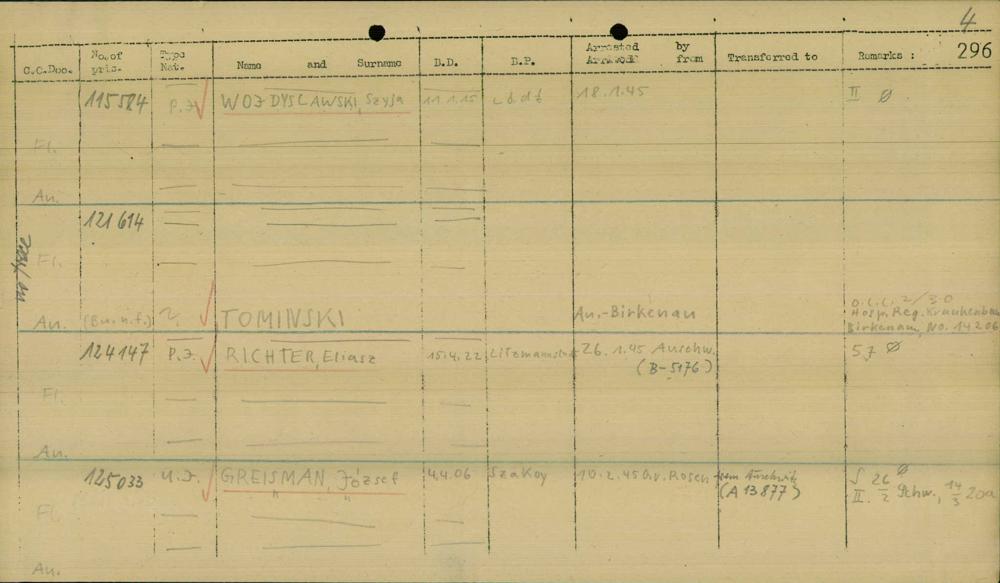 4
296
C.C.Doc. No. of pris. Type Nat. Name and Surname B.D. B.P. Arrested by Arrived from Transferred to Remarks :
115584 P.J. WOJDYSLAWSKI, Szyja 11.1.15 Lódź 18.1.45 II ∅
Fl.
Au.
121614
Fl.
Au. (Bu.n.f.) TOMINSKI Au.-Birkenau
O.C.C. 2/
Hosp. Reg. Krankenbau
Birkenau, No. 14206
124147 P.J. RICHTER, Eliasz 15.4.22 Litzmannstadt 26.1.45 Auschw. 57 ∅
(B-5176)
Fl.
Au.
125033 U.J. GREISMAN, József 4.4.06 Szakoy 10.2.45 Gr. Rosen Auschwitz
(A 13877)
∅
26/2 Schw., 14/3 20a
II.
Fl.
Au.